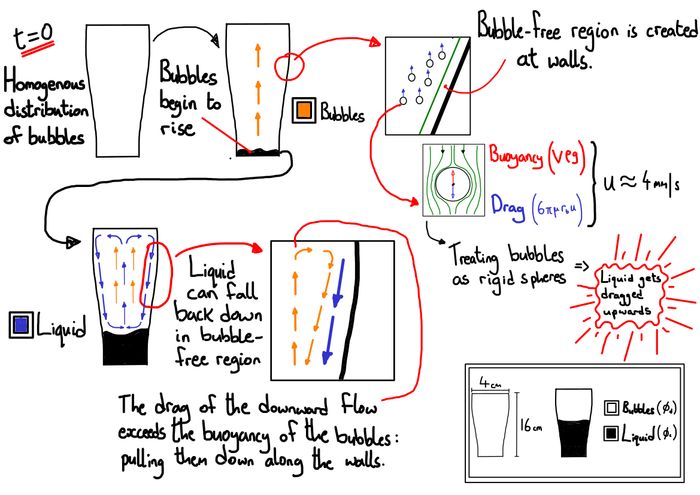 t=0
Homogenous
distribution
of bubbles
Bubbles
begin to
rise
Bubbles
Bubble-free region is created
at walls.
Buoyancy (Vρg)
Drag (6πμr₀u)
u ≈ 4mm/s
Treating bubbles
as rigid spheres =>
Liquid gets
dragged
upwards
Liquid
Liquid
can fall
back down
in bubble-
free region
The drag of the downward flow
exceeds the buoyancy of the bubbles:
pulling them down along the walls.
4cm
16cm
Bubbles
Liquid